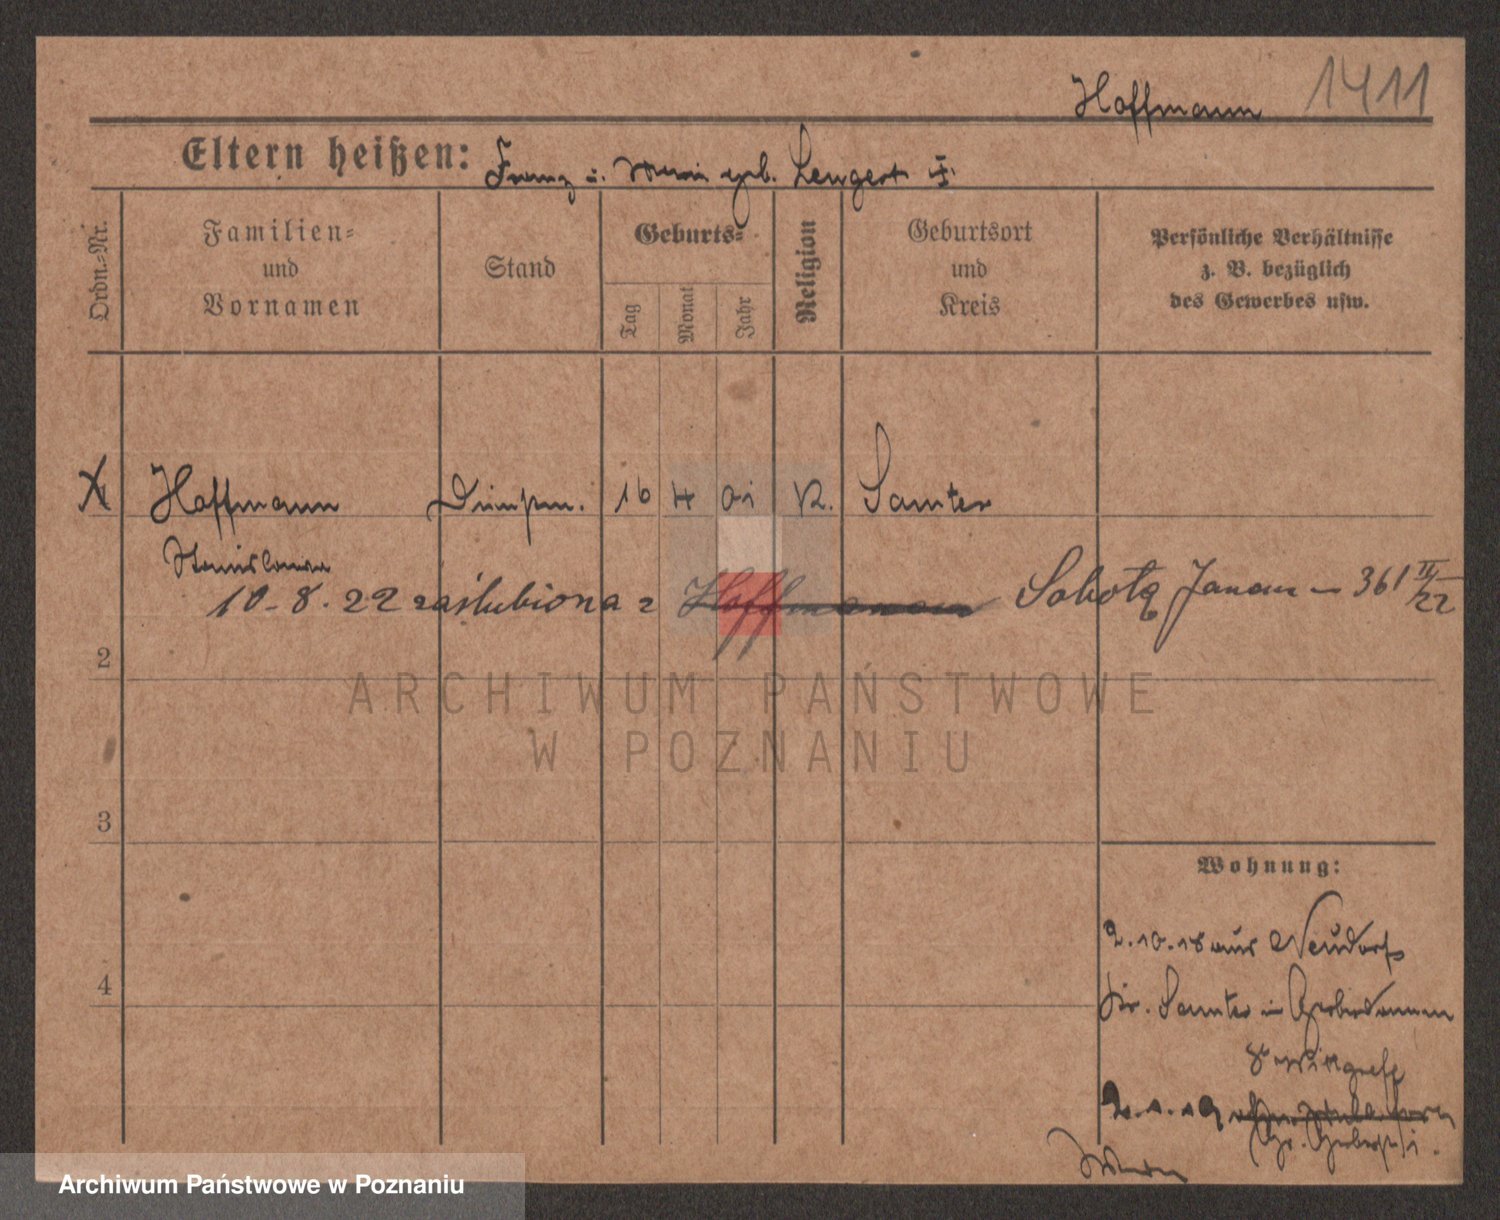 Hoffmann 1411
Eltern heißen: Franz u. geb.
Ordn.-Nr.
Familien-
und
Vornamen
Stand
Geburts-
Tag
Monat
Jahr
Religion
Geburtsort
und
Kreis
Persönliche Verhältnisse
z. B. bezüglich
des Gewerbes usw.
Hoffmann 16 4 01 K. Samter
Stanislawa
10-8.22 zaślubiona z Hoffmanem Sobotą Janem — 361 II/22
2
ARCHIWUM PAŃSTWOWE
W POZNANIU
3
Wohnung:
2.10.18 aus Neudorf
4
Kr. Samter in
Archiwum Państwowe w Poznaniu